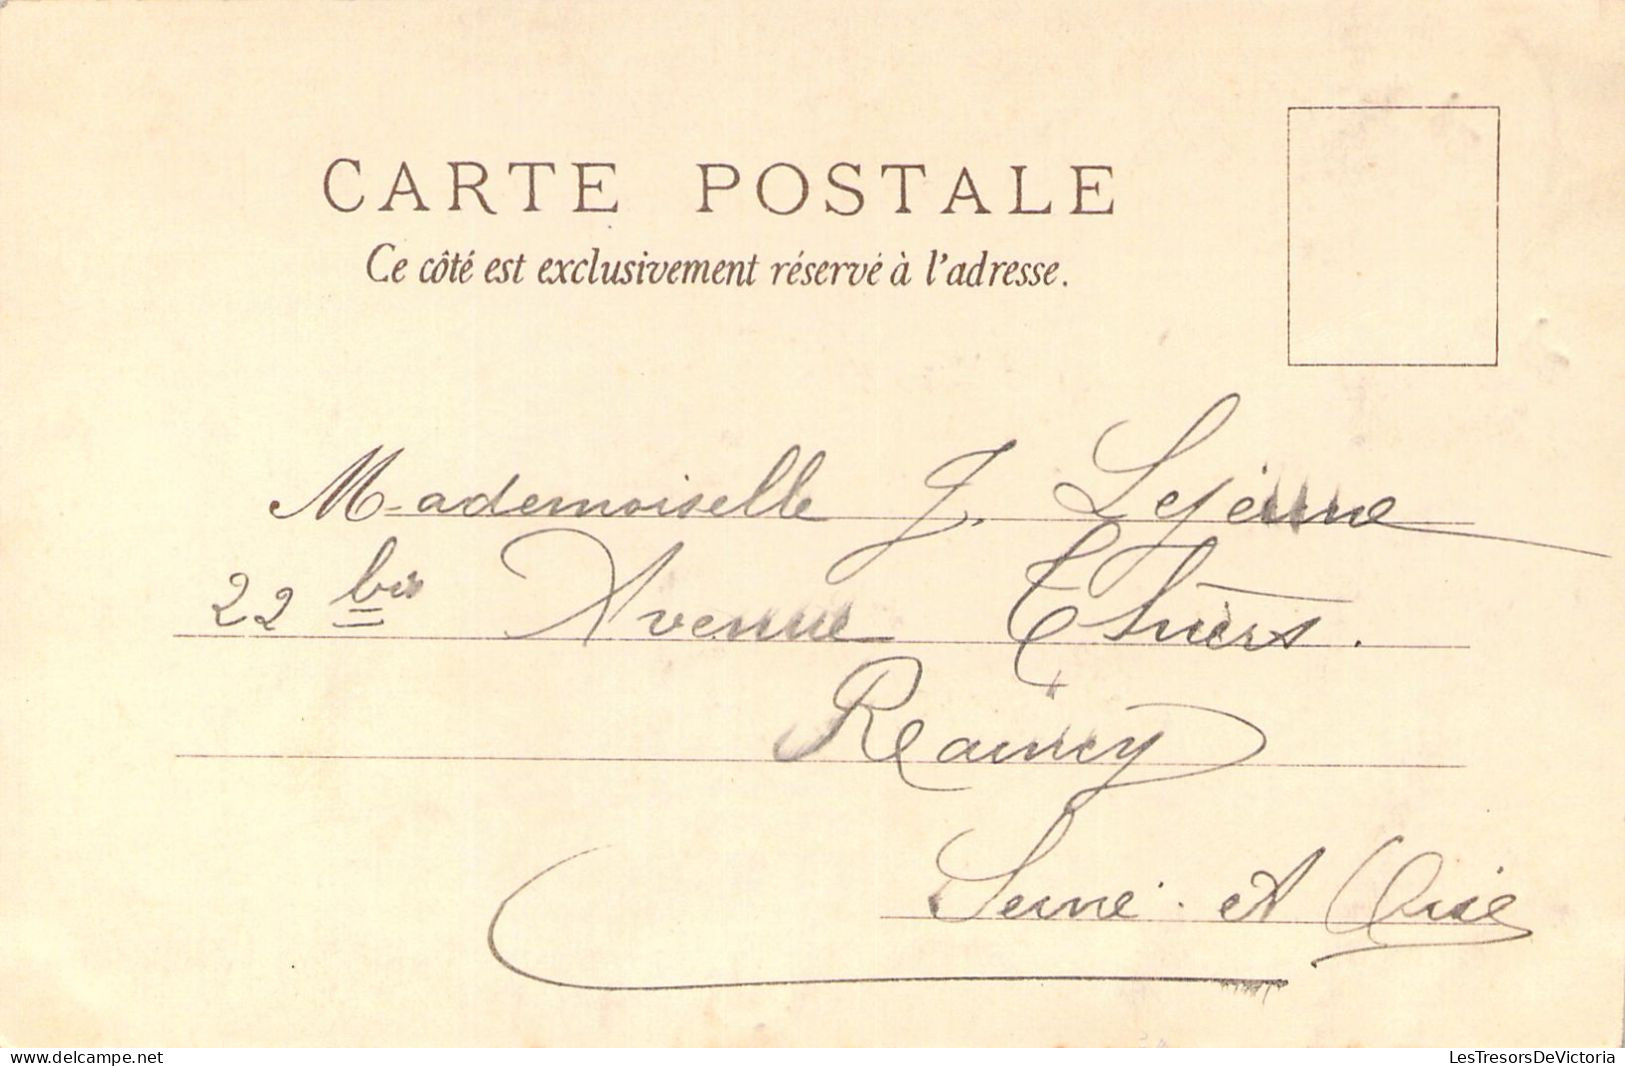 CARTE POSTALE
Ce côté est exclusivement réservé à l'adresse.
Mademoiselle J. Lejeune
22 bis Avenue Thiers.
Raincy
Seine et Oise
www.delcampe.net
LesTresorsDeVictoria